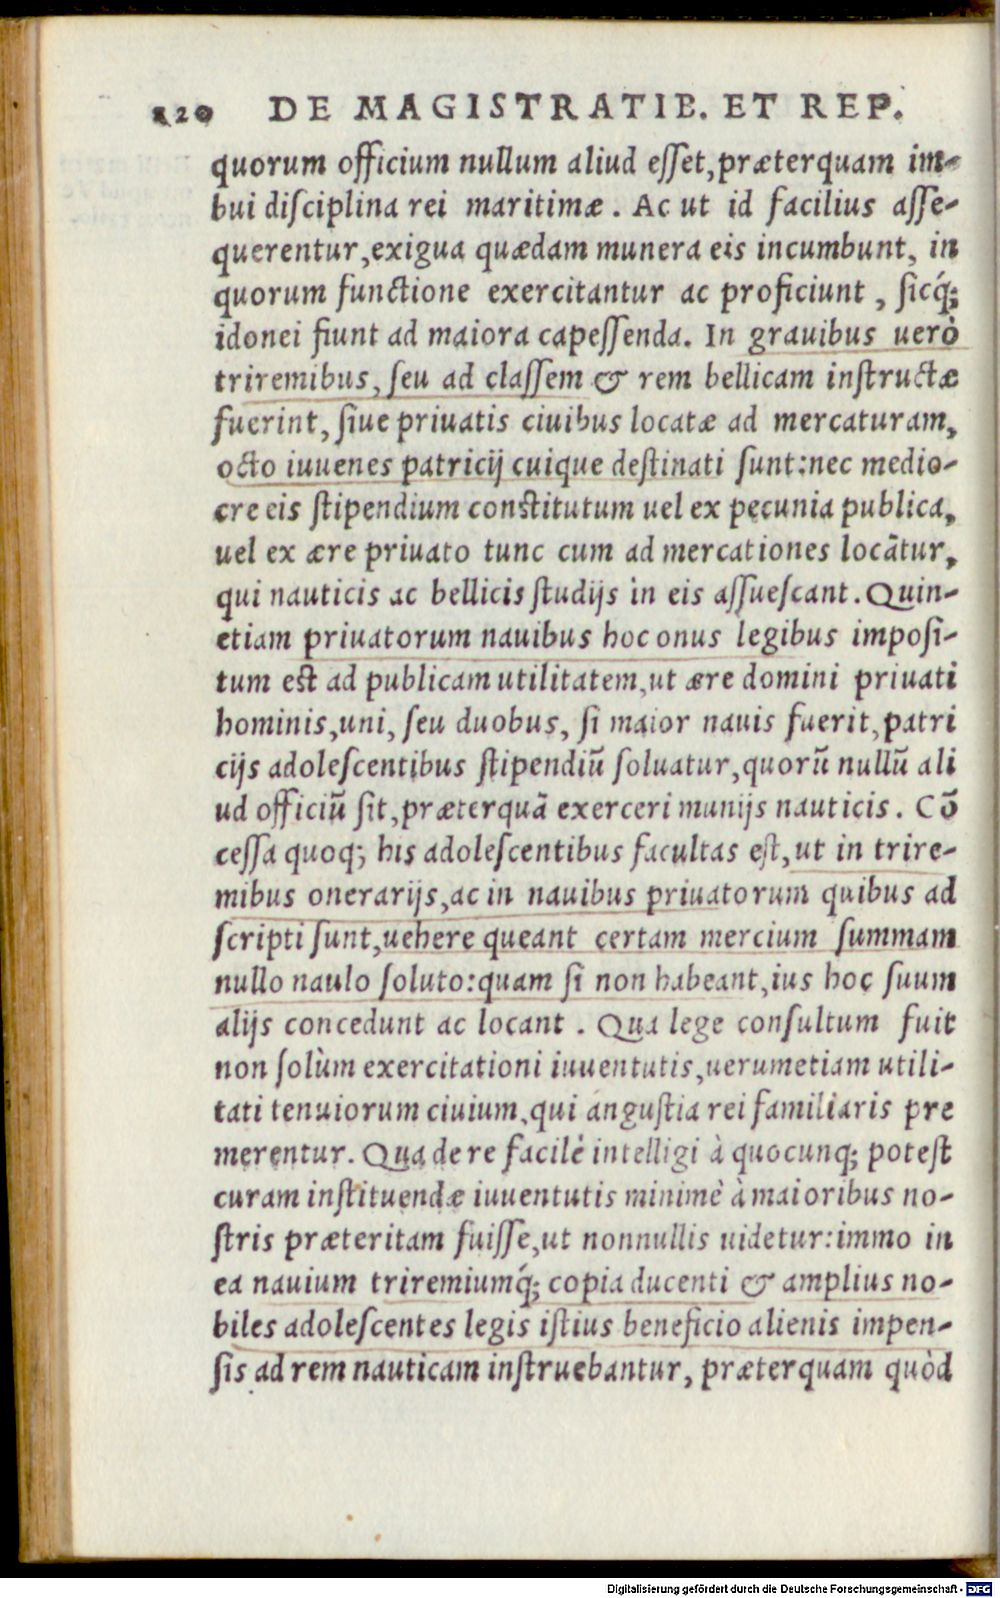 220 DE MAGISTRATIB. ET REP.
quorum officium nullum aliud eſſet,præterquam im-
bui diſciplina rei maritimæ. Ac ut id facilius aſſe-
querentur,exigua quædam munera eis incumbunt, in
quorum functione exercitantur ac proficiunt, ſicq́;
idonei fiunt ad maiora capeſſenda. In grauibus uerò
triremibus, ſeu ad claſſem & rem bellicam inſtructæ
fuerint, ſiue priuatis ciuibus locatæ ad mercaturam,
octo iuuenes patricij cuique deſtinati ſunt:nec medio-
cre eis ſtipendium conſtitutum uel ex pecunia publica,
uel ex ære priuato tunc cum ad mercationes locātur,
qui nauticis ac bellicis ſtudijs in eis aſſueſcant. Quin-
etiam priuatorum nauibus hoc onus legibus impoſi-
tum est ad publicam utilitatem,ut ære domini priuati
hominis,uni, ſeu duobus, ſi maior nauis fuerit,patri
cijs adoleſcentibus ſtipendiū ſoluatur,quorū nullū ali
ud officiū ſit,præterquā exerceri munijs nauticis. Cō
ceſſa quoq; his adoleſcentibus facultas eſt,ut in trire-
mibus onerarijs,ac in nauibus priuatorum quibus ad
ſcripti ſunt,uehere queant certam mercium ſummam
nullo naulo ſoluto:quam ſi non habeant,ius hoc ſuum
alijs concedunt ac locant. Qua lege conſultum fuit
non ſolùm exercitationi iuuentutis,uerumetiam utili-
tati tenuiorum ciuium,qui anguſtia rei familiaris pre
merentur. Qua de re facilè intelligi à quocunq; poteſt
curam inſtituendæ iuuentutis minimè à maioribus no-
ſtris præteritam fuiſſe,ut nonnullis uidetur:immo in
ea nauium triremiumq́; copia ducenti & amplius no-
biles adoleſcentes legis iſtius beneficio alienis impen-
ſis ad rem nauticam inſtruebantur, præterquam quòd
Digitalisierung gefördert durch die Deutsche Forschungsgemeinschaft - DFG